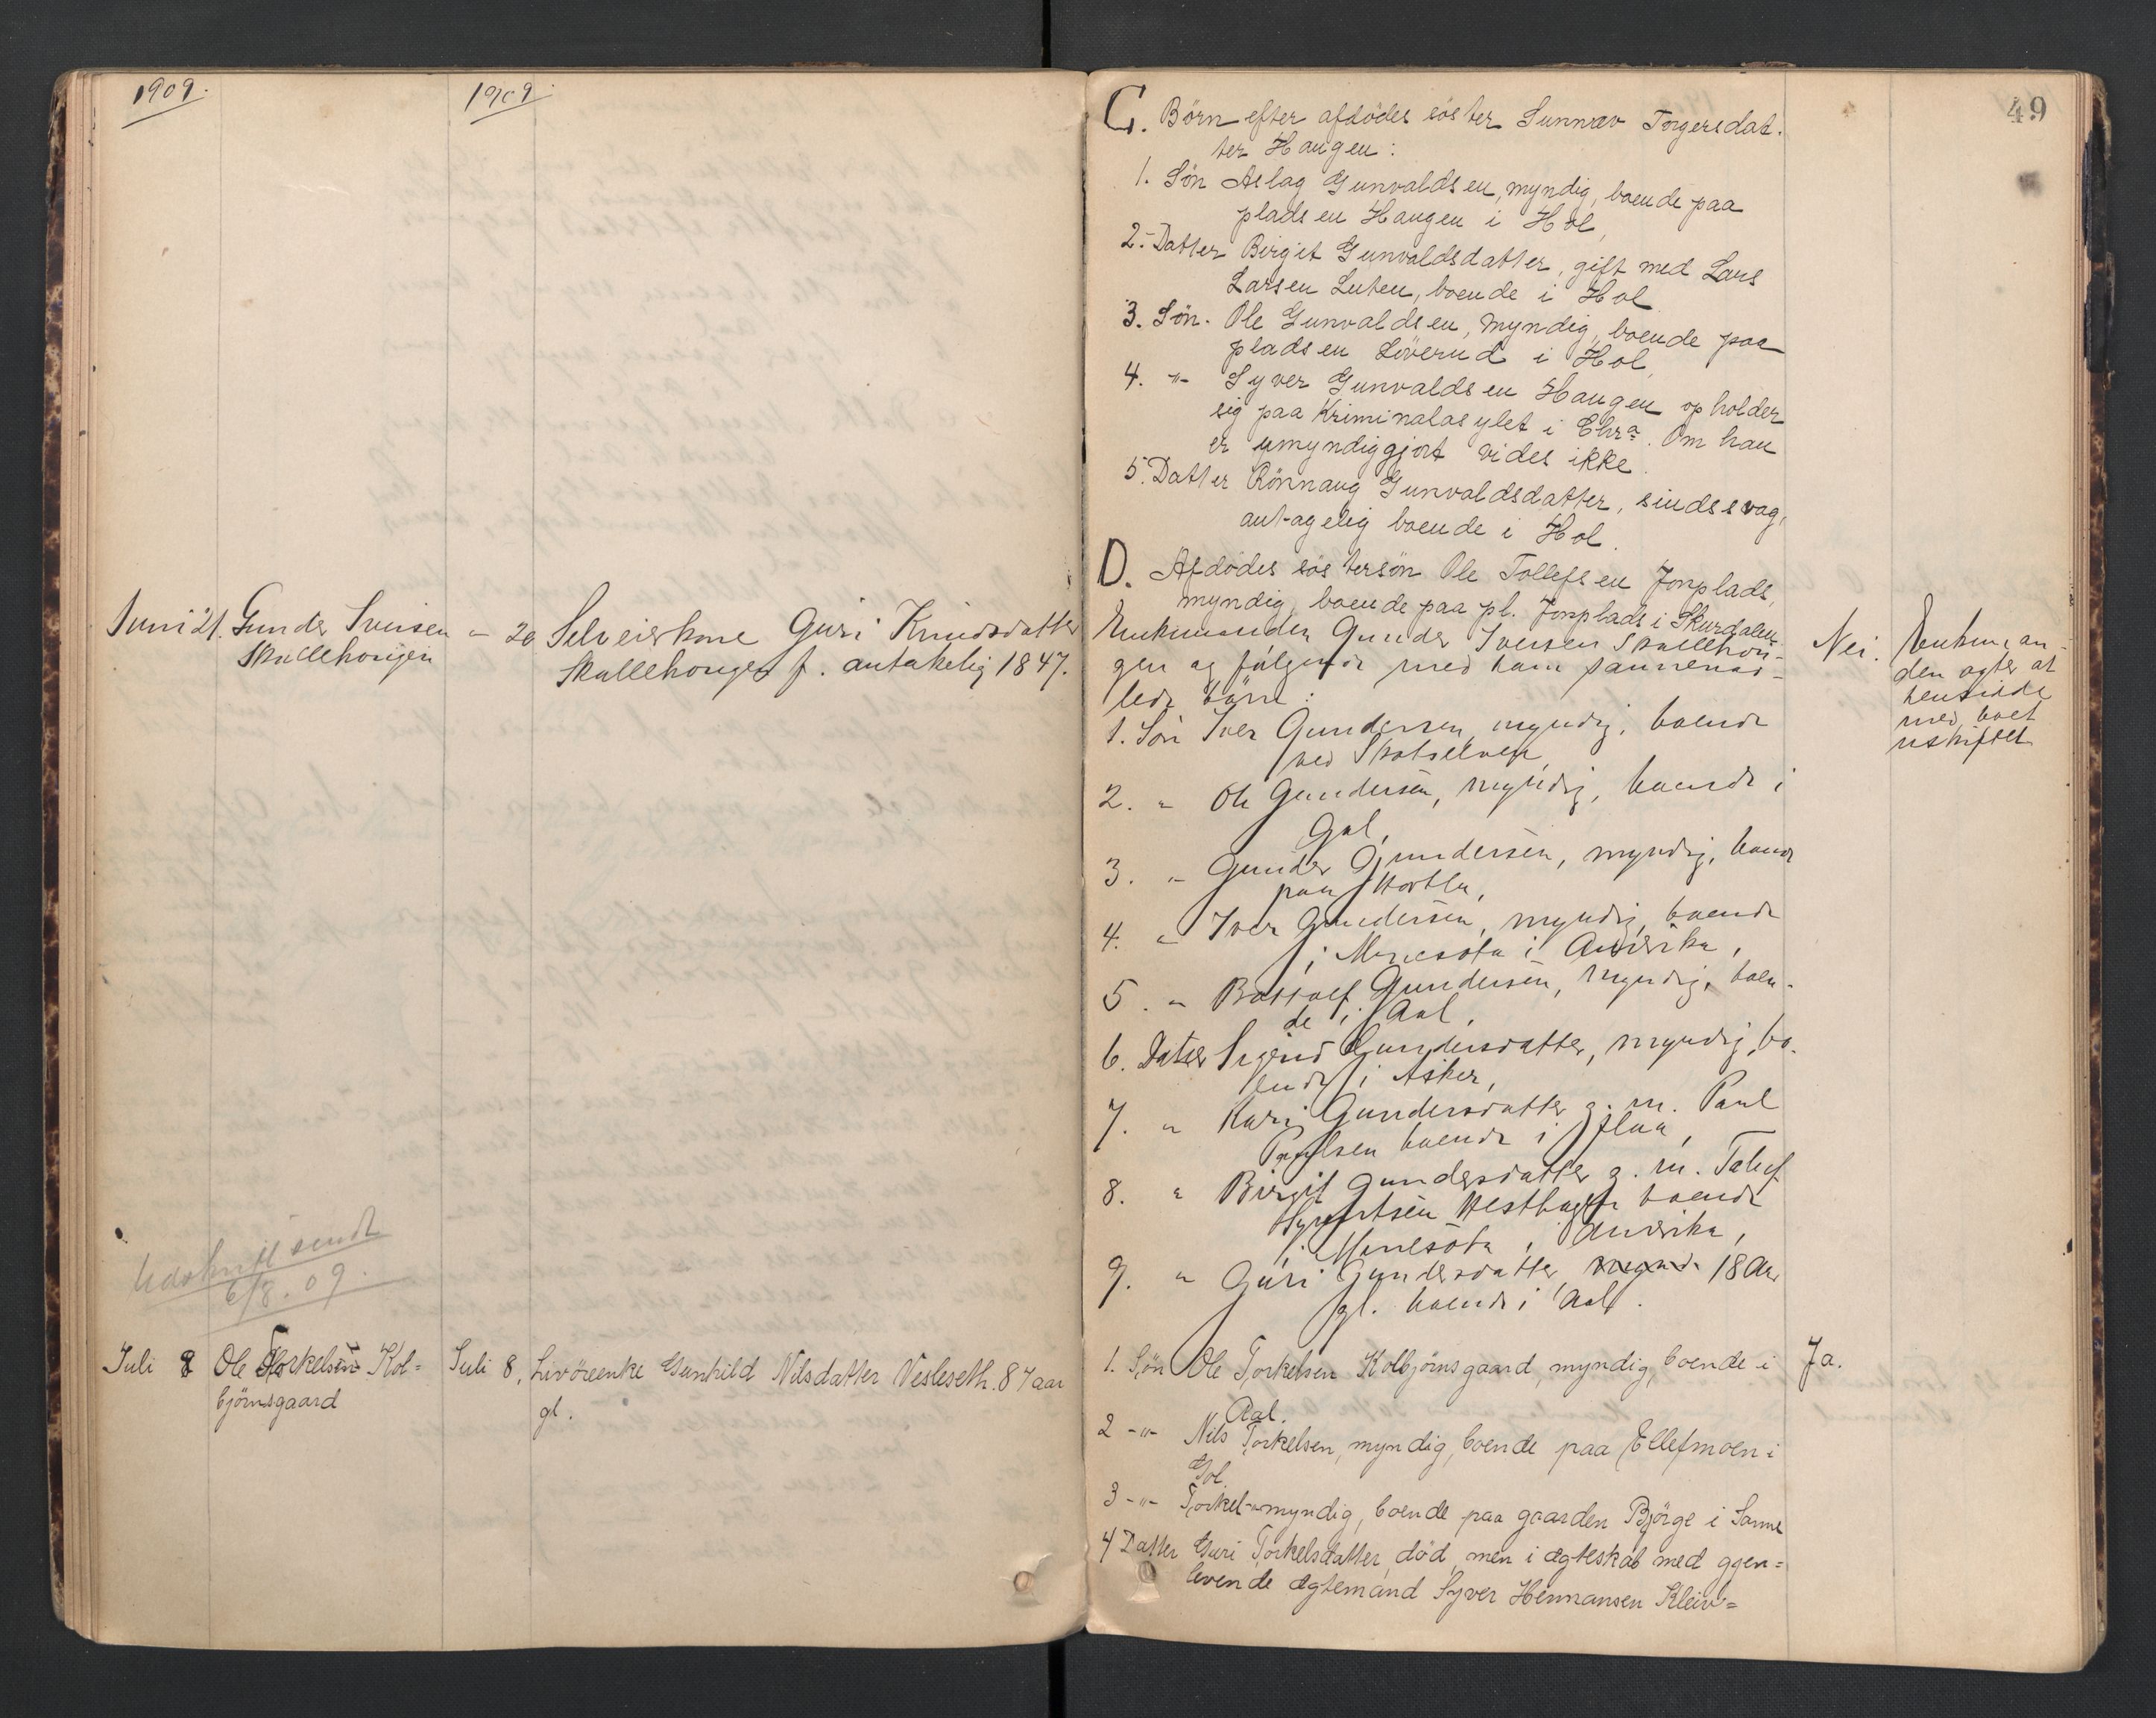 1909.
1909.
Juni 21. Gunder Iversen
Skallehougen
" 20 Selveierkone Guri Knudsdatter
Skallehougen f. antakelig 1847.
sendt
6/8. 09.
Juli 8 Ole Torkelsen Kol=
bjørnsgaard
Juli 8, Livöreenke Gunhild Nilsdatter Vesleseth. 87 aar
gl.
49
C. Börn efter afdödes söster Sunnæv Torgersdat-
ter Haugen:
1. Sön Aslag Gunvaldsen, myndig, boende paa
pladsen Haugen i Hol,
2. Datter Birgit Gunvaldsdatter, gift med Lars
Larsen Luten, boende i Hol
3. Sön. Ole Gunvaldsen, myndig, boende paa
pladsen Löverud i Hol,
4. -"- Syver Gunvaldsen Haugen opholder
sig paa Kriminalasylet i Chra. Om han
er umyndiggjort vides ikke.
5. Datter Rönnaug Gunvaldsdatter, sindssvag,
antagelig boende i Hol.
D. Afdödes söstersön Ole Tollefsen Jonplads,
myndig, boende paa pl. Jonplads i Skurdalen
Enkemanden Gunder Iversen Skallehou-
gen og følgende med ham sammenav-
lede börn:
1. Sön Iver Gundersen, myndig, boende
ved Skotselven,
2. " Ole Gundersen, myndig, boende i
Gol,
3. " Gunder Gundersen, myndig, boende
paa
4. " Iver Gundersen, myndig, boende
i Minesota i Amerika,
5. " Bottolf Gundersen, myndig, boen-
de i Aal,
6. Datter Sigrid Gundersdatter, myndig, bo-
ende i Asker,
7. " Kari Gundersdatter g. m. Paul
Paulsen boende i Flaa,
8. " Birgit Gundersdatter g. m.
boende
i Minesota i Amerika,
9. " Guri Gundersdatter, 18 Aar
gl. boende i Aal.
Nei.
Enkeman-
den agter at
hensidde
med boet
uskiftet
1. Sön Ole Torkelsen Kolbjørnsgaard, myndig, boende i
Aal.
Ja.
2 -"- Nils Torkelsen, myndig, boende paa Ellefmoen i
Gol.
3 -"- Torkel -"- myndig, boende paa gaarden Björge i Samme
4 Datter Guri Torkelsdatter, död, men i ægteskab med gjen=
levende ægtemand Syver Hermansen Kleiv=